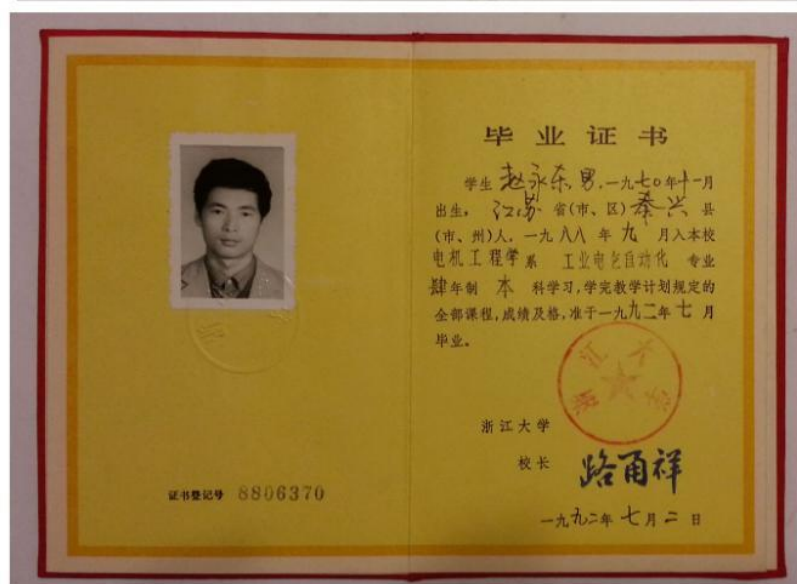 证书登记号 8806370
毕业证书
学生 赵永东 男,一九七0年十一月
出生。 江苏 省(市、区) 泰兴 县
(市、州)人,一九八八年九月入本校
电机工程学系 工业电气自动化 专业
肆年制 本 科学习,学完教学计划规定的
全部课程,成绩及格,准于一九九二年七月
毕业。
浙江大学
浙江大学
校长 路甬祥
一九九二年七月二日